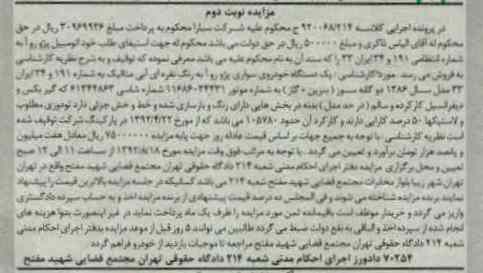 مزایده نوبت دوم
در پرونده اجرایی کلاسه ۹۲۰۰۶۸/۲۱۴ ج محکوم علیه شرکت سبارا محکوم به پرداخت مبلغ ۳۰۹۶۹۹۳۶ ریال در حق
محکوم له آقای الیاس ذاکری و مبلغ ۵۰۰۰۰۰ ریال در حق دولت می باشد محکوم له جهت استیفای طلب خود اتومبیل پژو رو آ به
شماره انتظامی ۱۹۱ و ۲۴ ایران ۳۳ را که سند آن به نام محکوم علیه می باشد معرفی نموده که توقیف و به شرح نظریه کارشناسی
به فروش می رسد. مورد کارشناسی: یک دستگاه خودروی سواری پژو رو آ به رنگ نقره ای آبی متالیک به شماره ۱۹۱ و ۲۴ ایران
۳۳ مدل سال ۱۳۸۶ دو گانه سوز (بنزین + گاز) به شماره موتور ۱۱۶۸۶۰۲۴۴۳۱ شماره شاسی ۶۱۳۴۴۸۶۳ که گیر بکس و
دیفرانسیل کارکرده و سالم (در حد مدل) بدنه در بخش هایی دارای رنگ و بازسازی شده و خط و خش جزئی دارد تودوزی مطلوب
و لاستیکها ۵۰ درصد کارایی دارند و کارکرد آن حدود ۱۰۵۷۸۰ می باشد که از مورخ ۱۳۹۲/۴/۲۲ در پارکینگ شرکت توقیف شده
است نظریه کارشناسی: با توجه به جمیع جهات بر اساس قیمت عادله روز جهت پایه مزایده ۷۵۰۰۰۰۰۰ ریال معادل هفت میلیون
و پانصد هزار تومان برآورد و تعیین می گردد. با توجه به مراتب فوق وقت مزایده مورخ ۱۳۹۲/۸/۱۸ از ساعت ۱۱ الی ۱۲ صبح
تعیین و محل برگزاری مزایده دفتر اجرای احکام مدنی شعبه ۲۱۴ دادگاه حقوقی تهران مجتمع قضایی شهید مفتح واقع در تهران
شهر زیبا بلوار مخابرات مجتمع قضایی شهید مفتح شعبه ۲۱۴ می باشد کسانیکه در جلسه مزایده بالاترین قیمت را پیشنهاد
نمایند برنده مزایده شناخته می شوند و فی المجلس ده درصد قیمت پیشنهادی از برنده مزایده اخذ و به حساب سپرده دادگستری
واریز می گردد و خریدار موظف است باقیمانده ثمن مورد مزایده را ظرف یک ماه پرداخت نماید در غیر اینصورت بدوا هزینه های
انجام شده از سپرده اخذ و الباقی به نفع دولت ضبط می گردد طالبین می توانند ۵ روز قبل از موعد مزایده بدفتر اجرای احکام مدنی
شعبه ۲۱۴ دادگاه حقوقی تهران مجتمع قضایی شهید مفتح مراجعه تا موجبات بازدید از خودرو فراهم گردد
۷۰۲۵۴ دادورز اجرای احکام مدنی شعبه ۲۱۴ دادگاه حقوقی تهران مجتمع قضایی شهید مفتح